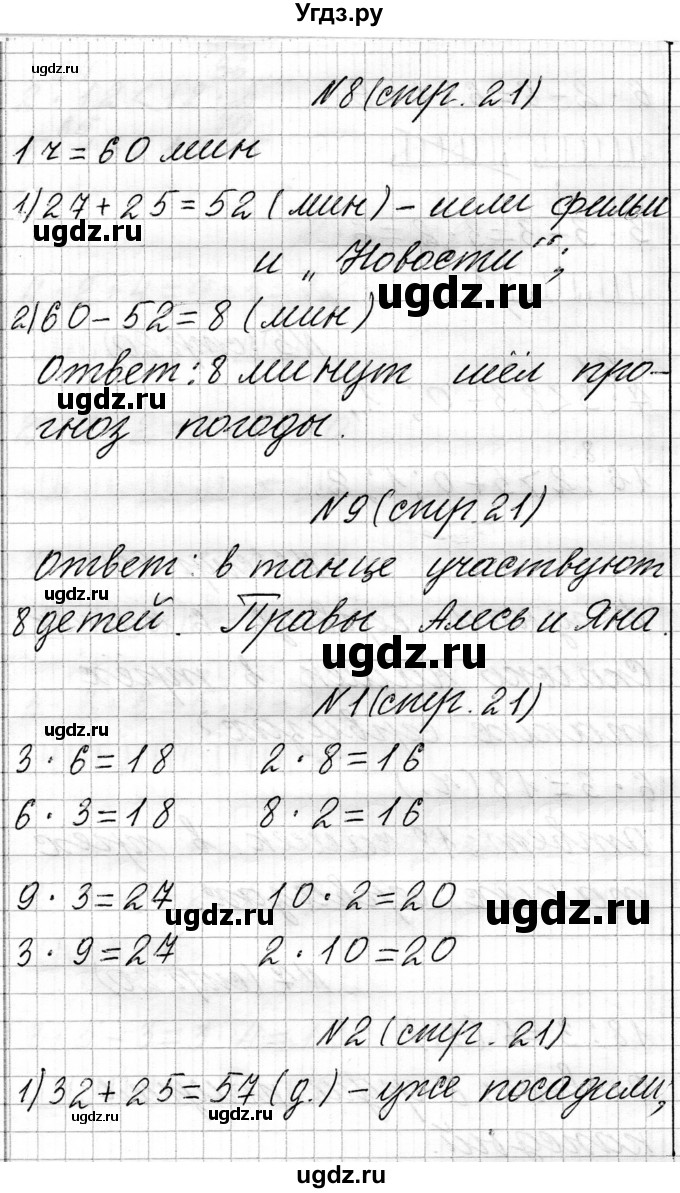 Угдз.ру
ugdz.ru
№8 (стр. 21)
1 ч = 60 мин
1) 27 + 25 = 52 (мин) – шли фильм
ugdz.ru
и „Новости“;
ugdz.ru
2) 60 – 52 = 8 (мин)
Ответ: 8 минут шёл про-
ugdz.ru
гноз погоды.
№9 (стр. 21)
Ответ: в танце участвуют
ugdz.ru
8 детей. Правы Алесь и Яна.
ugdz.ru
№1 (стр. 21)
ugdz.ru
3 · 6 = 18 2 · 8 = 16
6 · 3 = 18 8 · 2 = 16
9 · 3 = 27 10 · 2 = 20
ugdz.ru ugdz.ru
3 · 9 = 27 2 · 10 = 20
№2 (стр. 21)
1) 32 + 25 = 57 (д.) – уже посадили;
ugdz.ru ugdz.ru
ugdz.ru